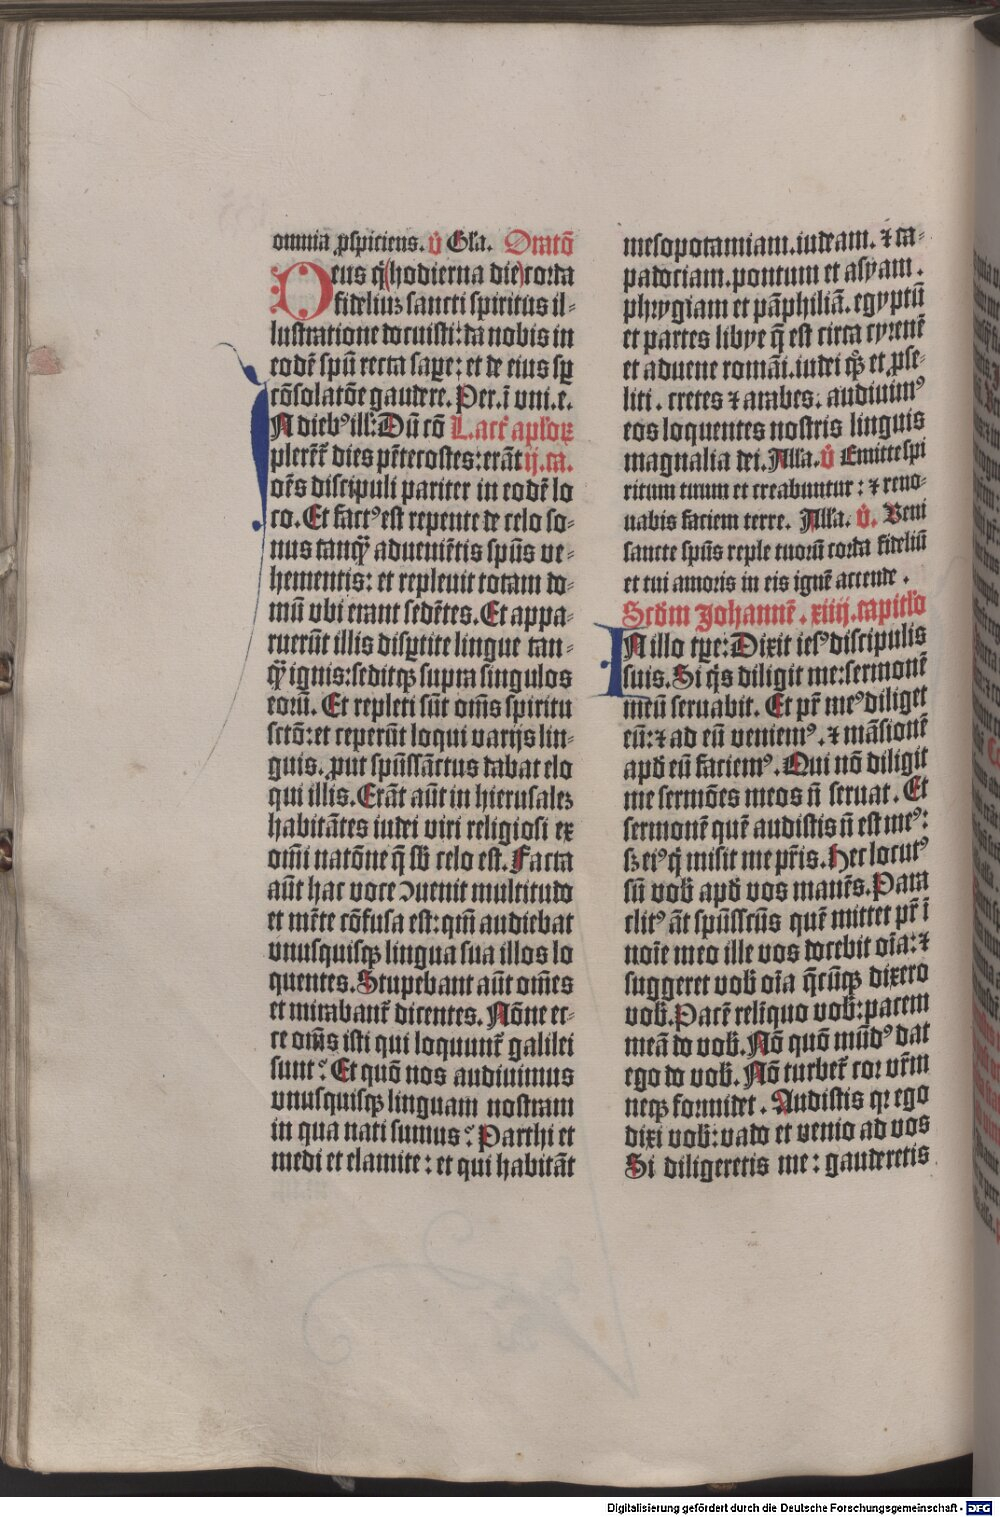 omnia ꝓspiciens. v̓ Gl'a. Oratō
Deus q̇ (hodierna die) corda
fideliuꝫ sancti spiritus il-
lustratione docuisti: da nobis in
eodē spū recta saꝑe: et de eius sꝑ
cōsolatōe gaudere. Per. ī vni. e.
IN dieb⁹ ill': Dū cō L. act̓ apl'oꝝ
plerēt̓ dies pētecostes: erāt ij. ca.
oēs discipuli pariter in eodē lo
co. Et fact⁹ est repente de celo so-
nus tanq̄ꝫ adueniētis spūs ve-
hementis: et repleuit totam do-
mū vbi erant sedētes. Et appa-
ruerūt illis disꝑtite lingue tan-
q̄ꝫ ignis: seditqꝫ supra singulos
eorū. Et repleti sūt om̄s spiritu
sctō: et ceperūt loqui varijs lin-
guis. ꝓut spūssāctus dabat elo
qui illis. Erāt aūt in hierusaleꝫ
habitātes iudei viri religiosi ex
om̄i natōne q̄ sb̓ celo est. Facta
aūt hac voce ɔuenit multitudo
et mēte cōfusa est: qm̄ audiebat
vnusquisqꝫ lingua sua illos lo
quentes. Stupebant aūt om̄es
et mirabant̓ dicentes. Nōne ec-
ce om̄s isti qui loquunt̓ galilei
sunt? Et quō nos audiuimus
vnusquisqꝫ linguam nostram
in qua nati sumus? Parthi et
medi et elamite: et qui habitāt
mesopotamiam. iudeam. ⁊ ca-
padociam. pontum et asyam.
phrygiam et pāphiliā. egyptū
et partes libye q̄ est circa cyrenē
et aduene romāi. iudei qꝫ̓ et ꝓse-
liti. cretes ⁊ arabes. audiuim⁹
eos loquentes nostris linguis
magnalia dei. Alla. v̓ Emitte spi
ritum tuum et creabuntur: ⁊ reno-
uabis faciem terre. Alla. v̓. Veni
sancte spūs reple tuorū corda fideliū
et tui amoris in eis ignē accende.
Scd̓m Johannē. xiiij. capitl'o
IN illo tꝑe: Dixit ies⁹ discipulis
suis. Si q̇s diligit me: sermonē
meū seruabit. Et pr̄ me⁹ diliget
eū: ⁊ ad eū veniem⁹. ⁊ māsionē
apd̓ eū faciem⁹. Qui nō diligit
me sermōes meos n̄ seruat. Et
sermonē quē audistis n̄ est me⁹:
sꝫ ei⁹ q̇ misit me pr̄is. Hec locut⁹
sū vob̓ apd̓ vos manēs. Para
clit⁹ āt spūsscūs quē mittet pr̄ ī
noīe meo ille vos docebit oīa: ⁊
suggeret vob̓ oīa q̄cūqꝫ dixero
vob̓. Pacē reliquo vob̓: pacem
meā do vob̓. Nō quō mūd⁹ dat
ego do vob̓. Nō turbet̓ cor vr̄m
neqꝫ formidet. Audistis qꝛ ego
dixi vob̓: vado et venio ad vos
Si diligeretis me: gauderetis
Digitalisierung gefördert durch die Deutsche Forschungsgemeinschaft - DFG